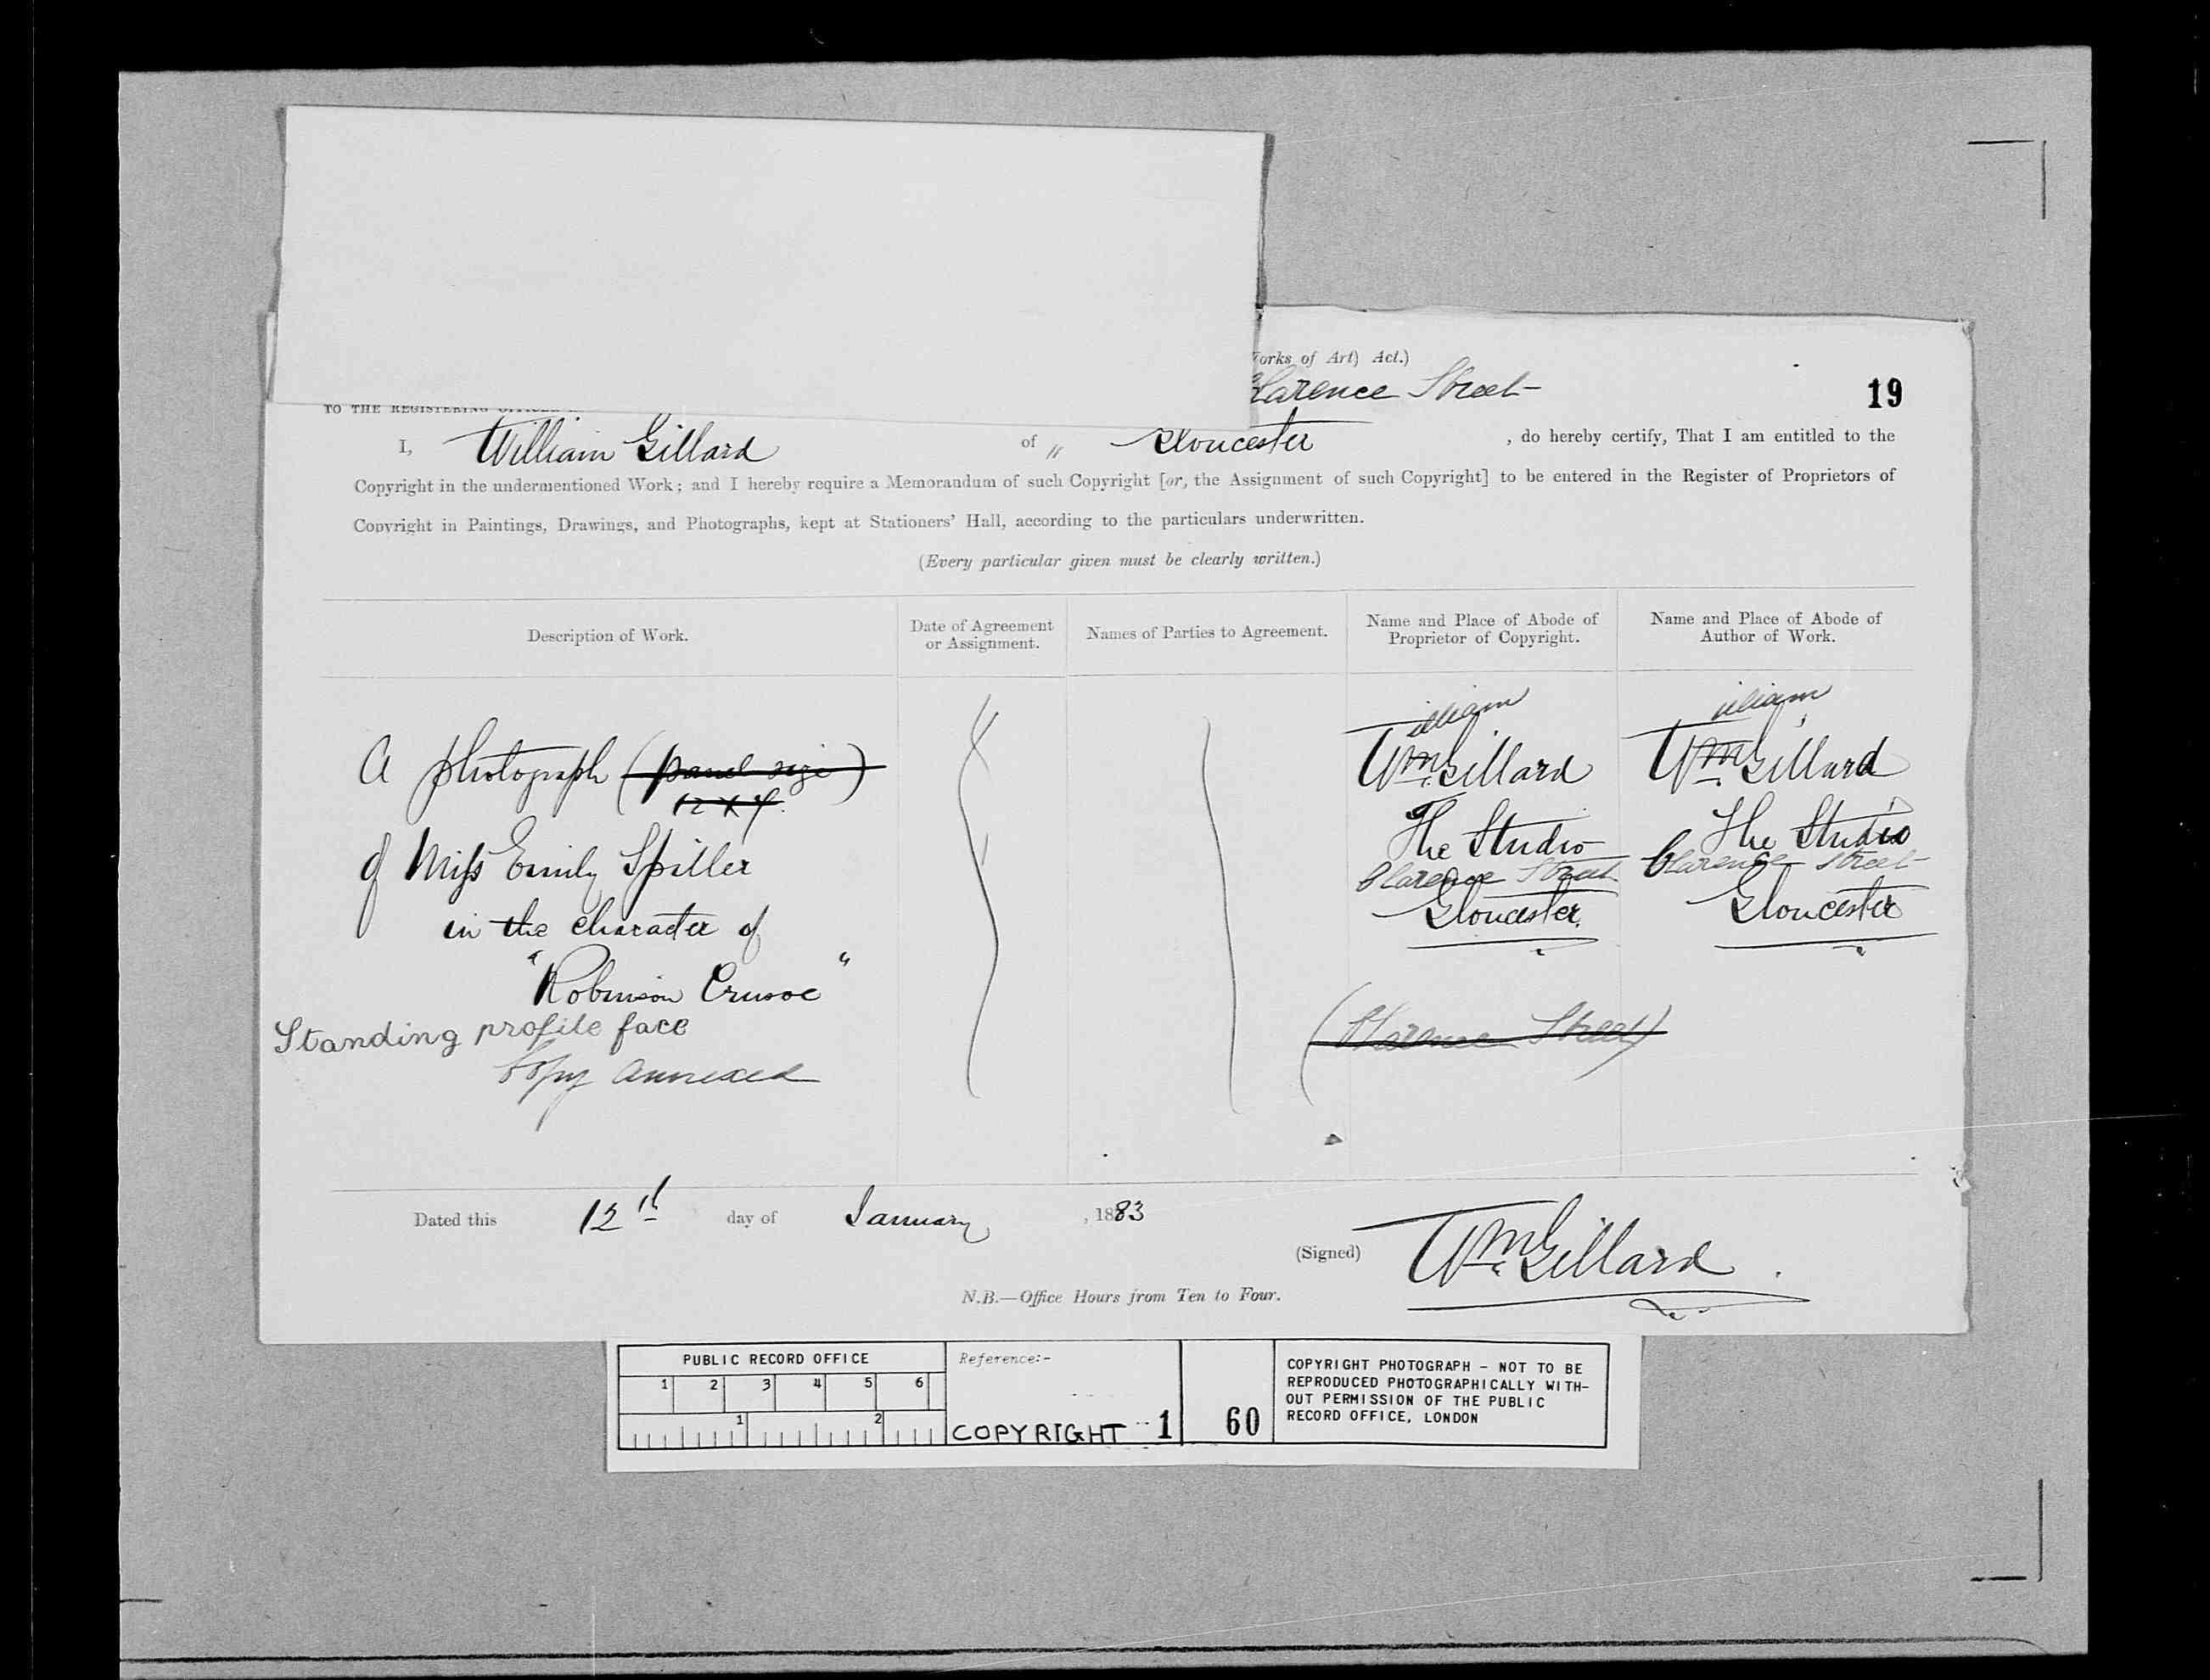 orks of Art) Act.)
Clarence Street
19
TO THE REGISTERING
I, William Gillard of " Gloucester , do hereby certify, That I am entitled to the
Copyright in the undermentioned Work; and I hereby require a Memorandum of such Copyright [or, the Assignment of such Copyright] to be entered in the Register of Proprietors of
Copyright in Paintings, Drawings, and Photographs, kept at Stationers' Hall, according to the particulars underwritten.
(Every particular given must be clearly written.)
Description of Work.
Date of Agreement
or Assignment.
Names of Parties to Agreement.
Name and Place of Abode of
Proprietor of Copyright.
Name and Place of Abode of
Author of Work.
A photograph (panel size)
12 x 7.
of Miss Emily Spiller
in the character of
"Robinson Crusoe"
Standing profile face
Copy annexed
illiam
Wm. Gillard
The Studio
Clarence Street
Gloucester.
(Clarence Street)
illiam
Wm. Gillard
The Studio
Clarence Street
Gloucester
Dated this 12th day of January , 1883
(Signed) Wm. Gillard.
N.B.—Office Hours from Ten to Four.
PUBLIC RECORD OFFICE
1 2 3 4 5 6
1 2
Reference:-
COPYRIGHT 1
60
COPYRIGHT PHOTOGRAPH - NOT TO BE
REPRODUCED PHOTOGRAPHICALLY WITH-
OUT PERMISSION OF THE PUBLIC
RECORD OFFICE, LONDON